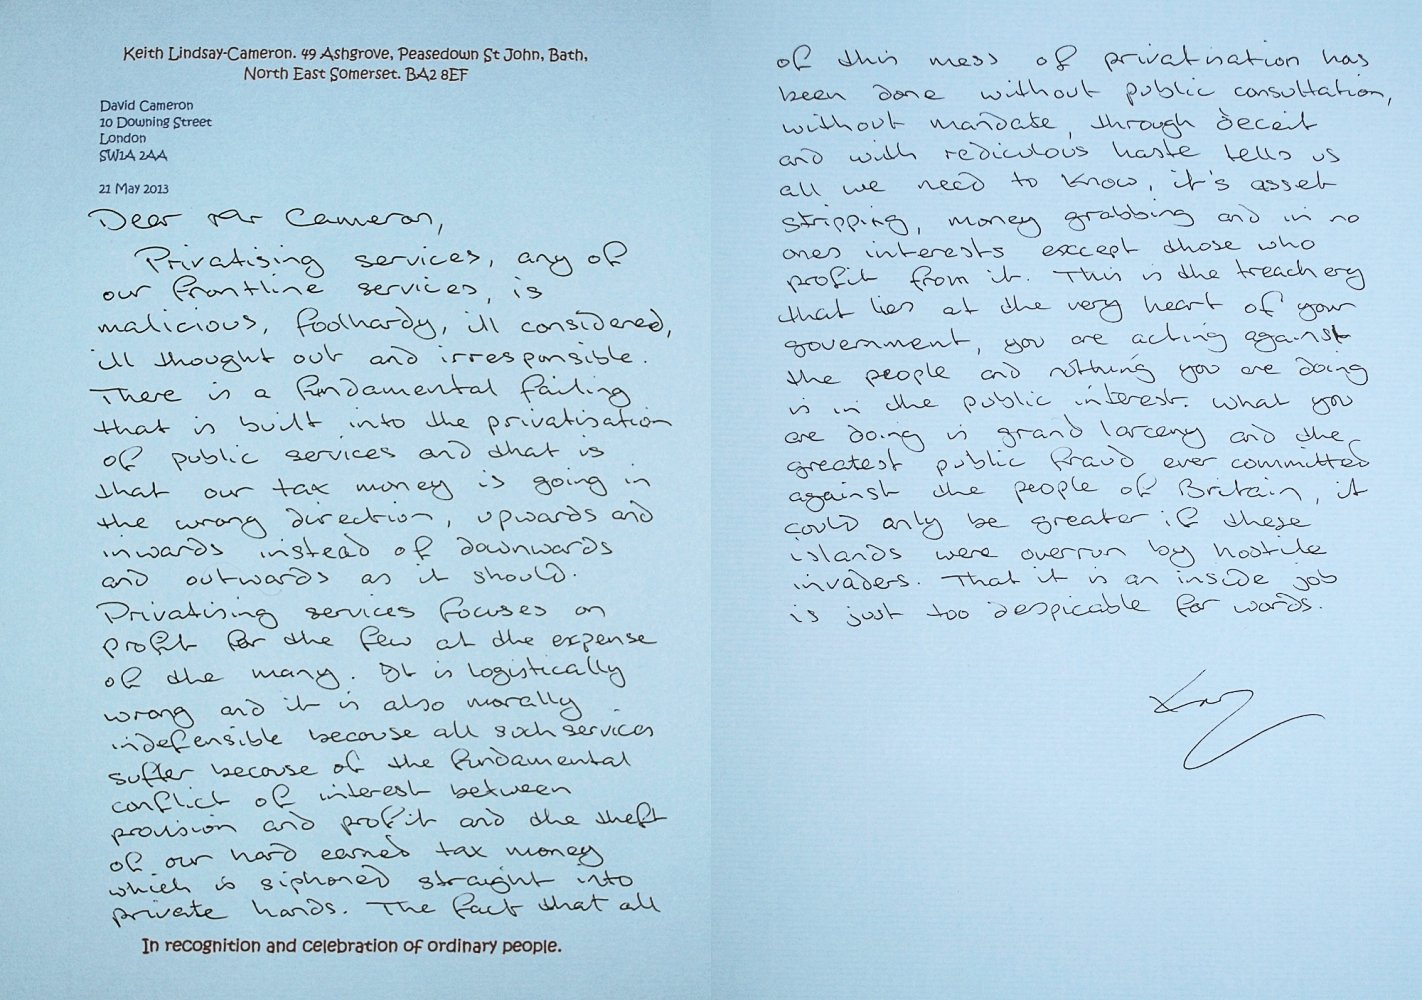 Keith Lindsay-Cameron. 49 Ashgrove, Peasedown St John, Bath,
North East Somerset. BA2 8EF
David Cameron
10 Downing Street
London
SW1A 2AA
21 May 2013
Dear Mr Cameron,
Privatising services, any of
our frontline services, is
malicious, foolhardy, ill considered,
ill thought out and irresponsible.
There is a fundamental failing
that is built into the privatisation
of public services and that is
that our tax money is going in
the wrong direction, upwards and
inwards instead of downwards
and outwards as it should.
Privatising services focuses on
profit for the few at the expense
of the many. It is logistically
wrong and it is also morally
indefensible because all such services
suffer because of the fundamental
conflict of interest between
provision and profit and the theft
of our hard earned tax money
which is siphoned straight into
private hands. The fact that all
In recognition and celebration of ordinary people.
of this mess of privatisation has
been done without public consultation,
without mandate, through deceit
and with rediculous haste tells us
all we need to know, it's asset
stripping, money grabbing and in no
ones interests except those who
profit from it. This is the treachery
that lies at the very heart of your
government, you are acting against
the people and nothing you are doing
is in the public interest. What you
are doing is grand larceny and the
greatest public fraud ever committed
against the people of Britain, it
could only be greater if these
islands were overrun by hostile
invaders. That it is an inside job
is just too despicable for words.